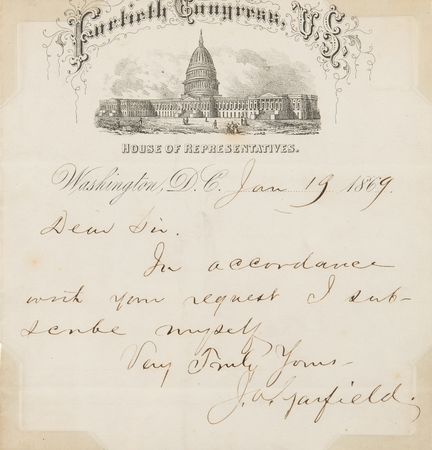 Fortieth Congress, U.S.
House of Representatives.
Washington, D.C. Jan 19 1869.
Dear Sir.
In accordance
with your request I sub-
scribe myself
Very Truly Yours-
J. A. Garfield.